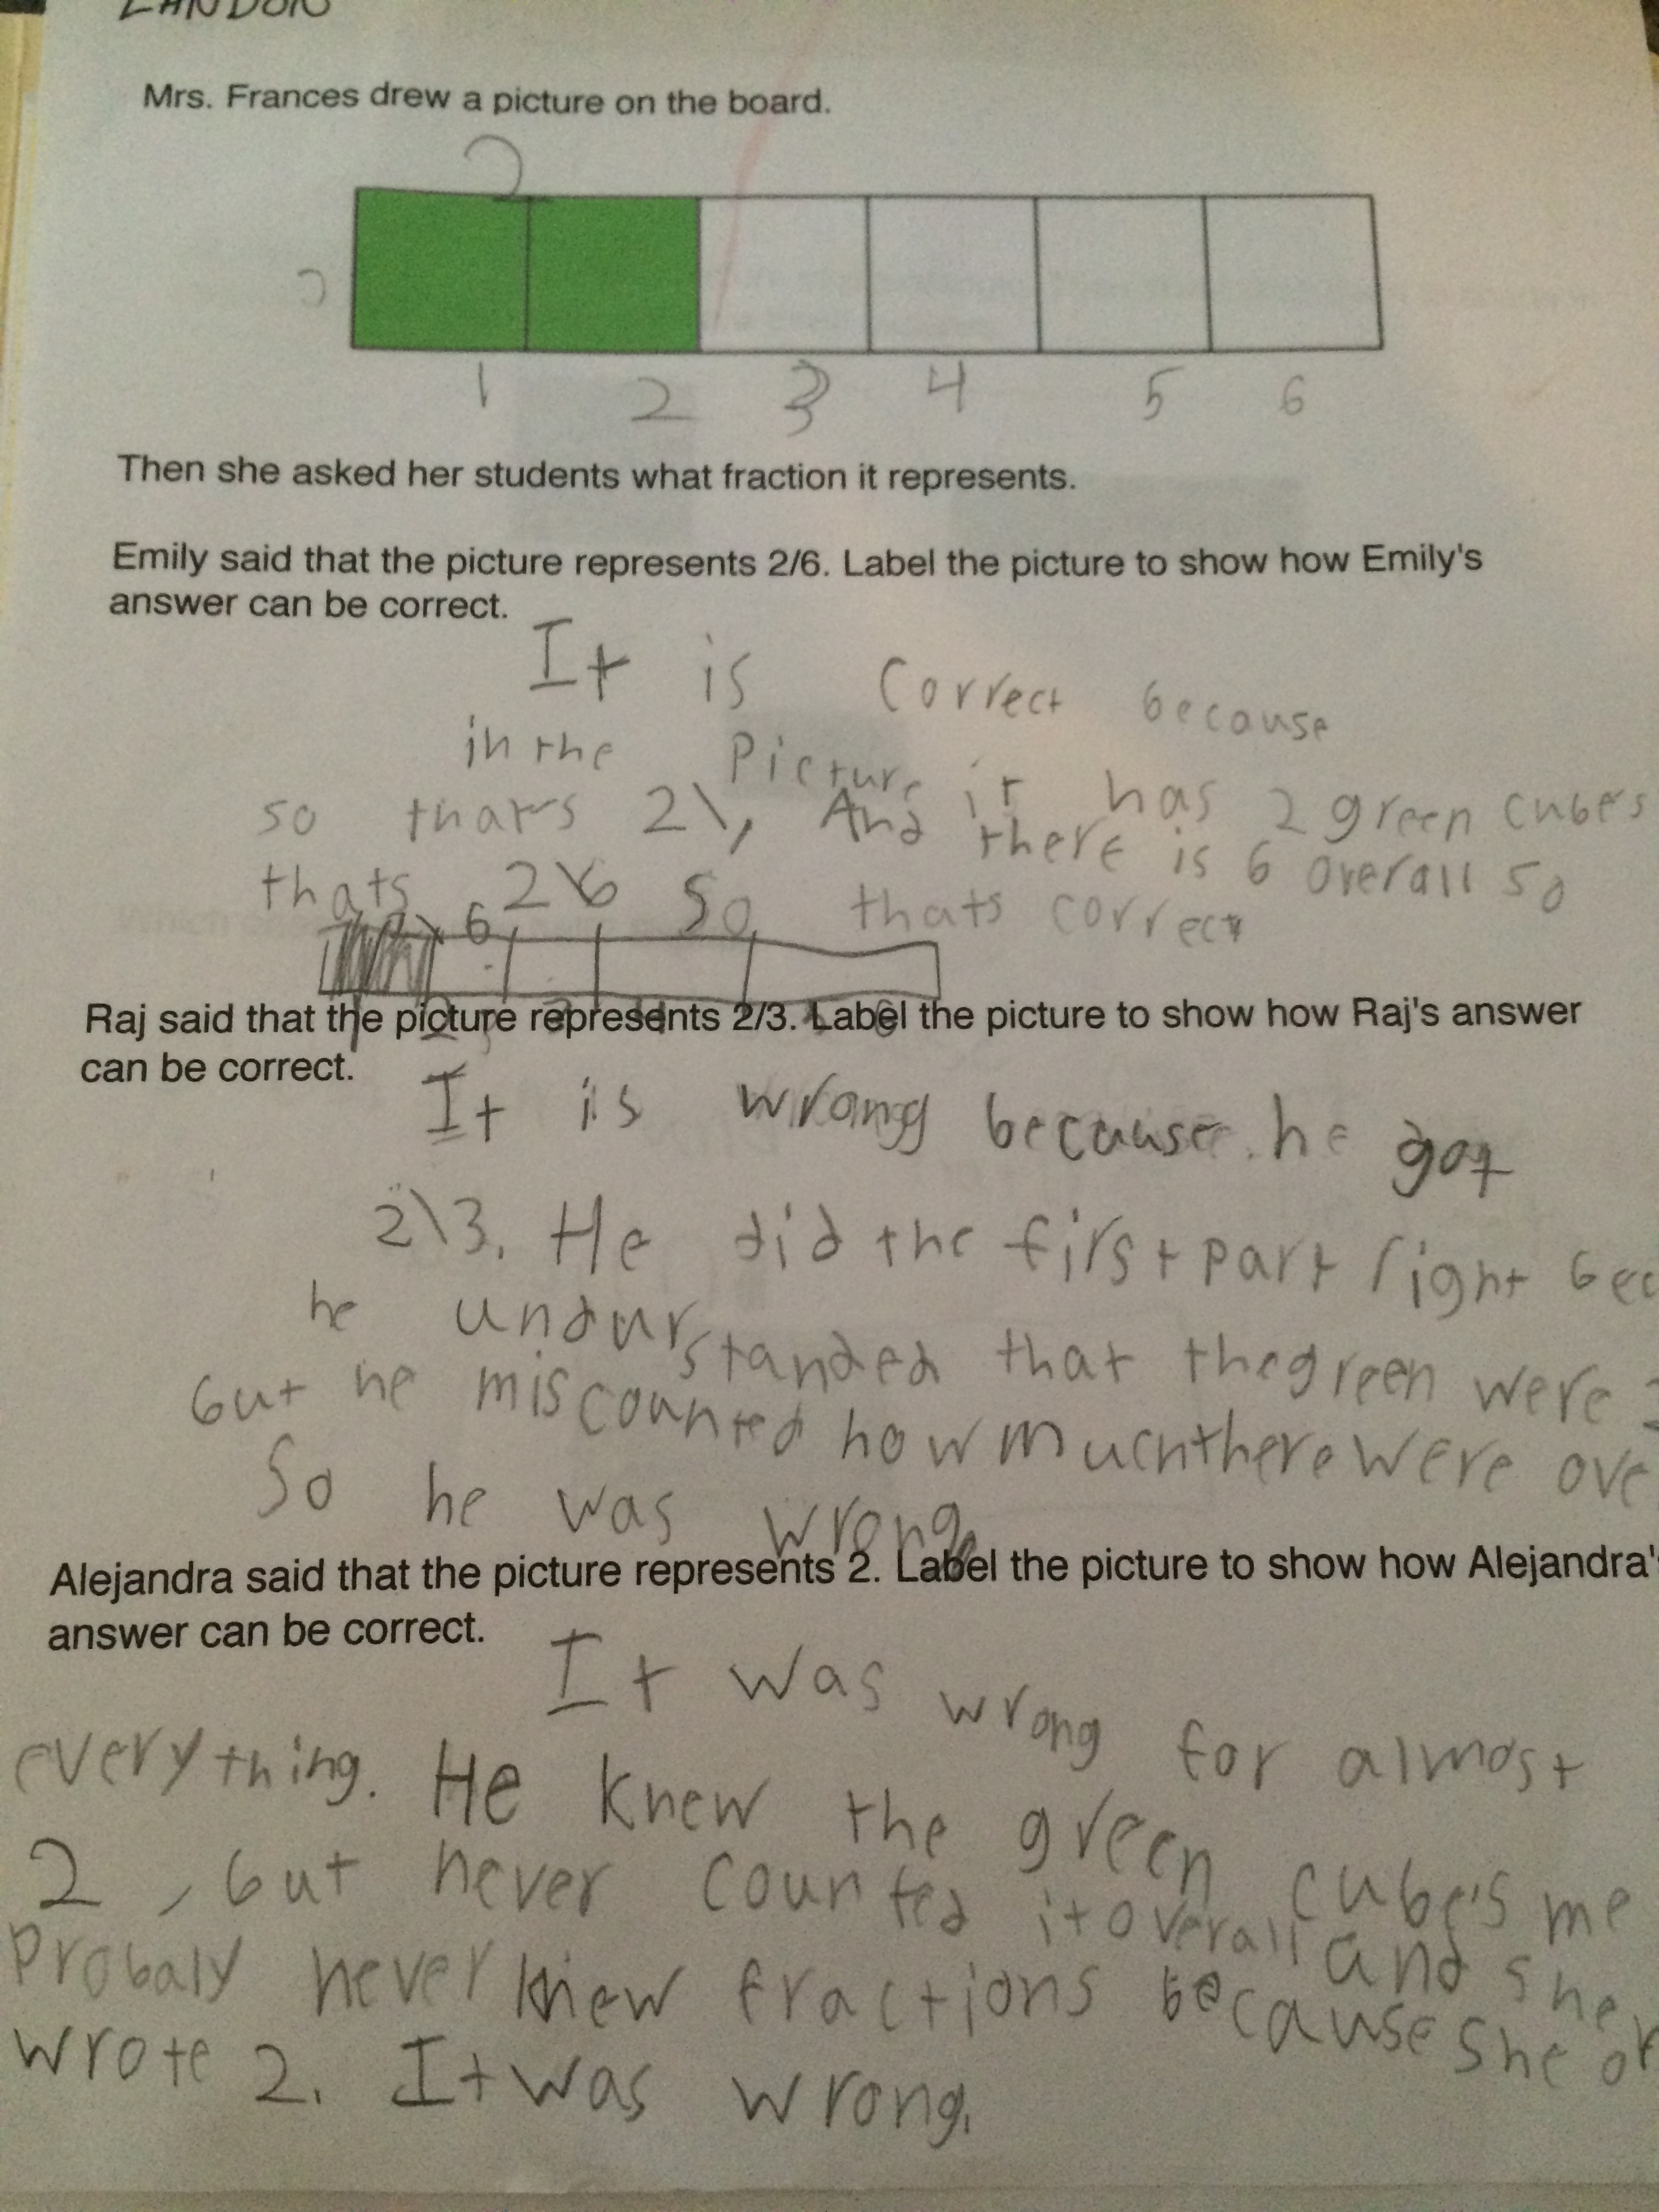 LANDON
Mrs. Frances drew a picture on the board.
2
1 2 3 4 5 6
Then she asked her students what fraction it represents.
Emily said that the picture represents 2/6. Label the picture to show how Emily's
answer can be correct.
It is correct because
in the Picture it has 2 green cubes
so that's 2\, And there is 6 overall so
thats 2\6 So thats correct
6
Raj said that the picture represents 2/3. Label the picture to show how Raj's answer
can be correct.
It is wrong because he got
2\3. He did the first part right bec
he undurstanded that the green were 2
but he miscounted how much there were ove
So he was wrong.
Alejandra said that the picture represents 2. Label the picture to show how Alejandra's
answer can be correct.
It was wrong for almost
everything. He knew the green cube's me
2, but never counted it overall and she
Probaly never knew fractions because she
wrote 2. It was wrong.